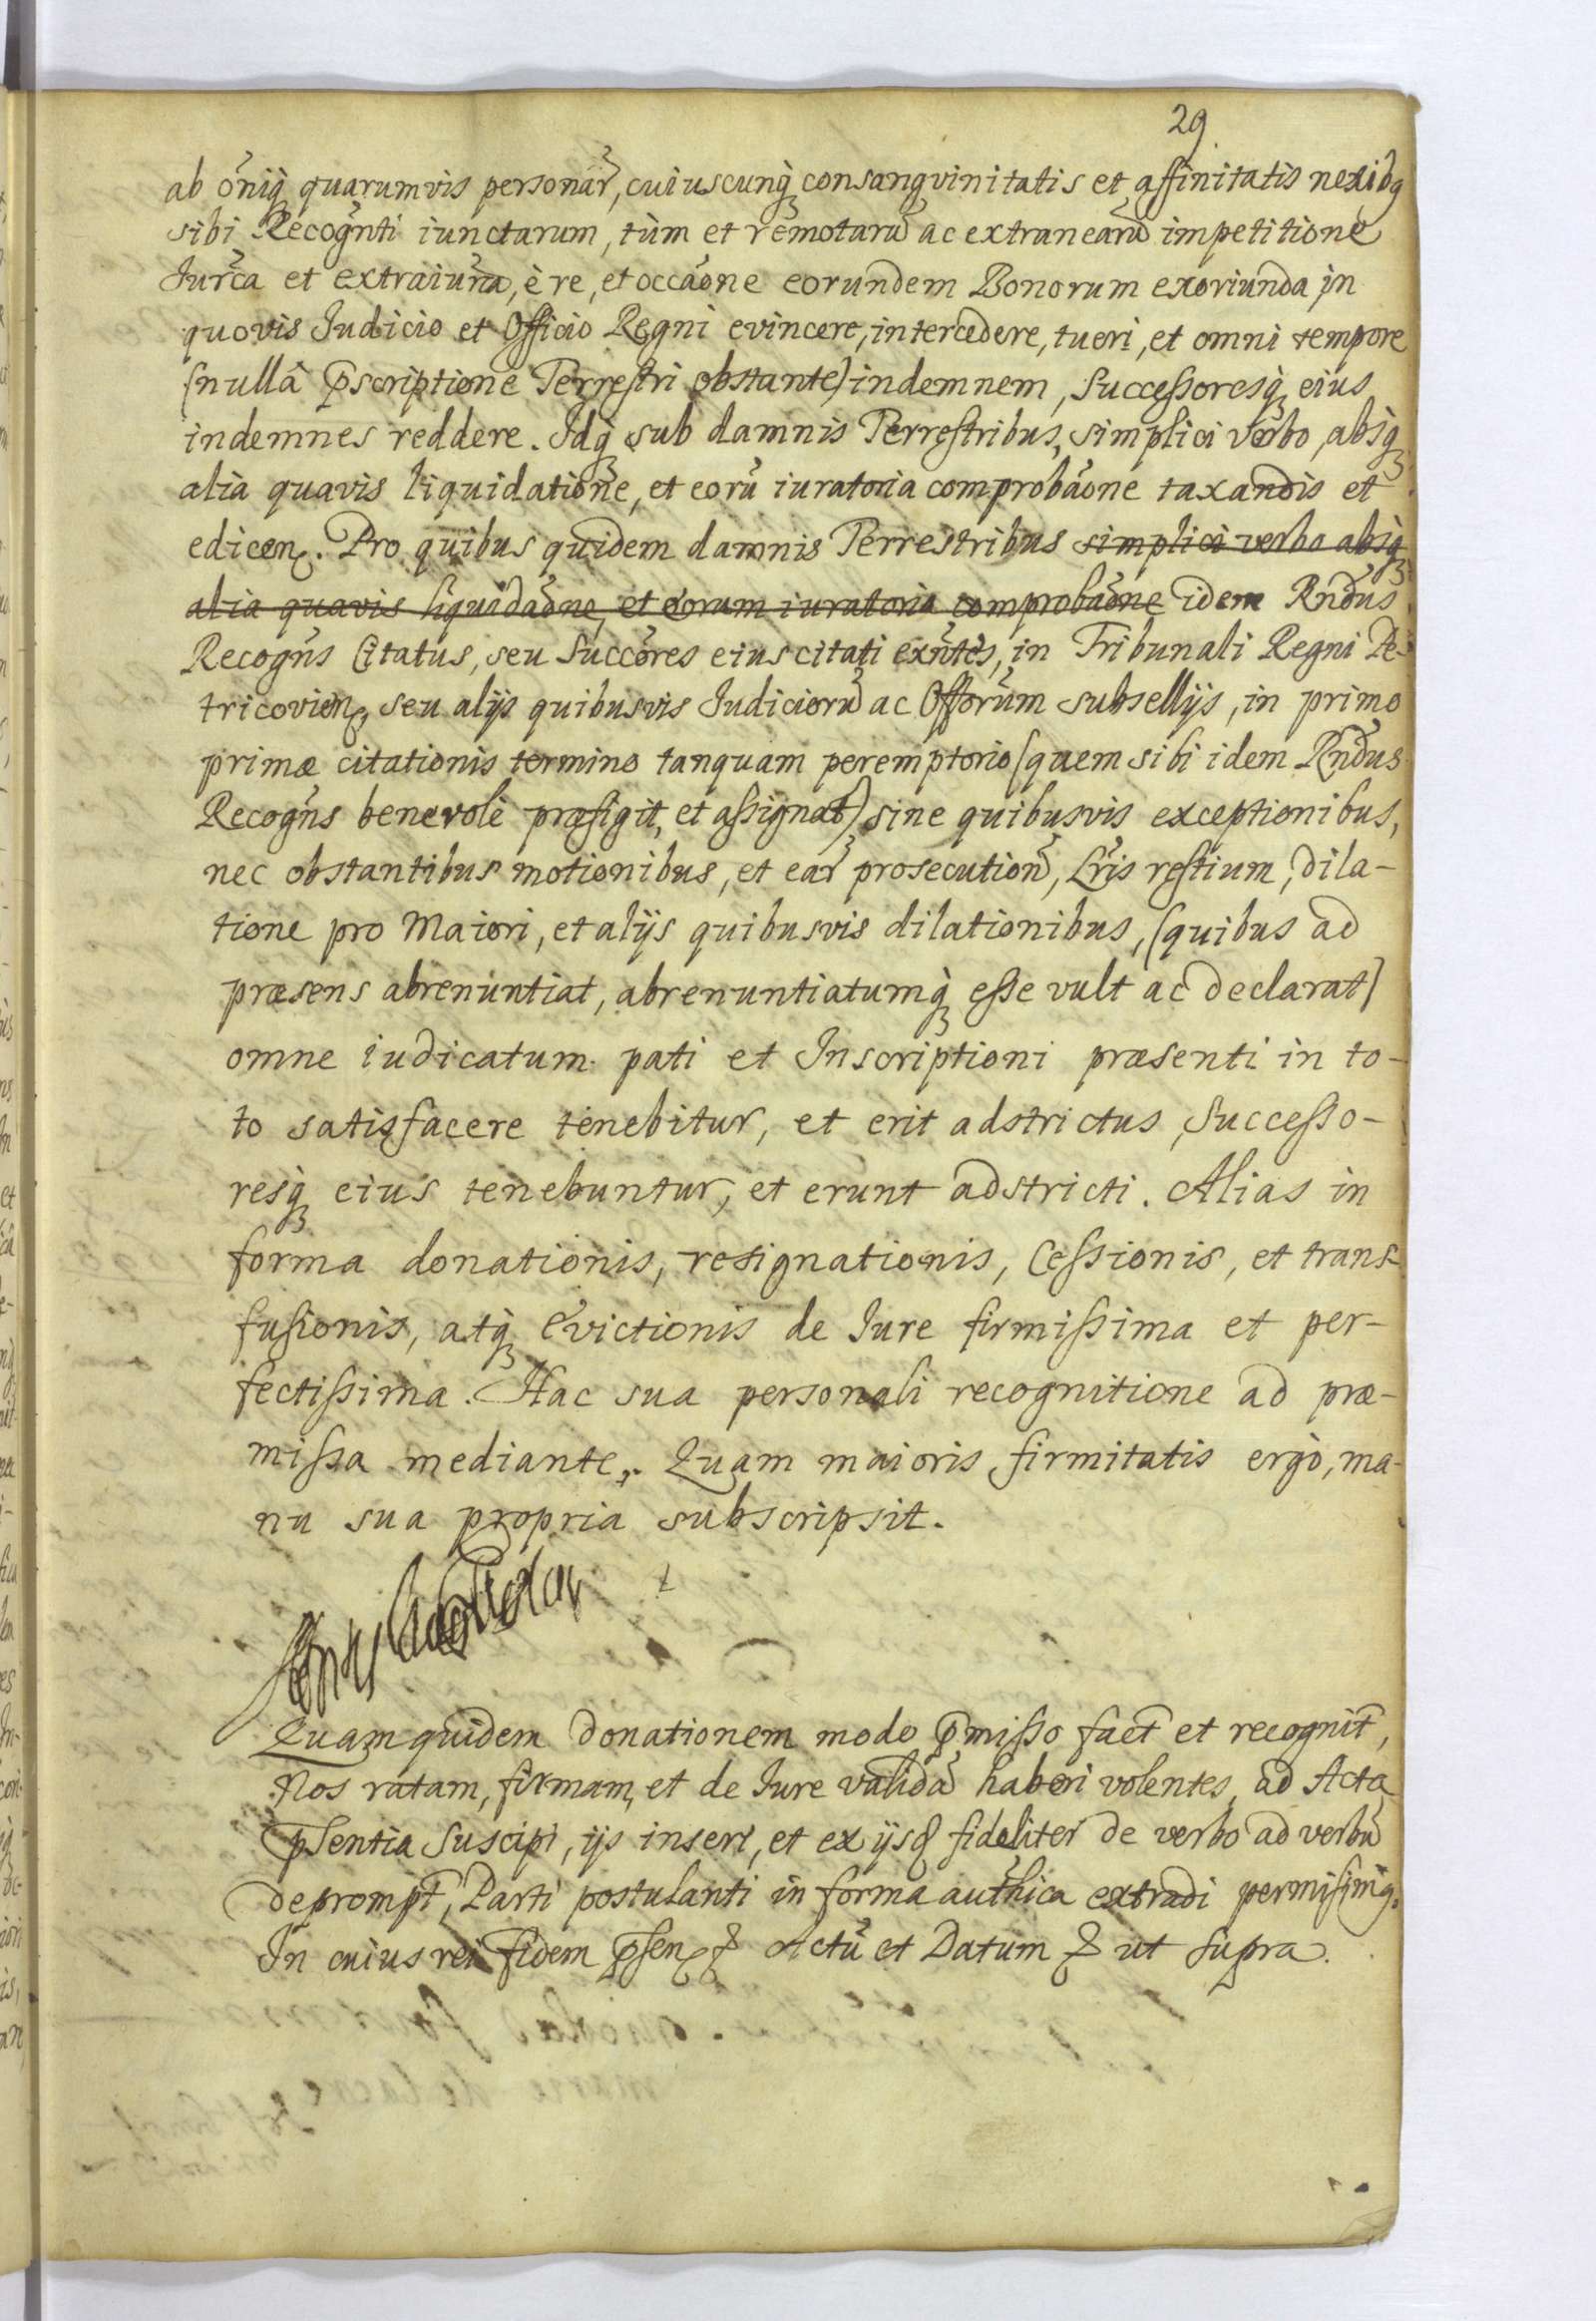 29
ab o͂niq̃ quarumvis personar̃, cuiuscunq̃ consangvinitatis et affinitatis nexibq
sibi Recogñti iunctarum, tùm et remotarũ ac extranearũ impetitione
Iurc̃a et extraiuña, è re, et occãõne eorundem Bonorum exoriunda in
quovis Iudicio et Officio Regni evincere, intercedere, tueri, et omni tempore
(nullâ p̃scriptione Terrestri obstante) indemnem, Successoresq̃ eius
indemnes reddere. Idq̃ sub damnis Terrestribus, simplici verbo, absq̃
alia quavis liquidatione, et eorũ iuratoria comprobãõne taxandis et
edicen. Pro quibus quidem damnis Terrestribus simplici verbo absq̃
alia quavis liquidãõne, et eorum iuratoria comprobãõne idem Rñdus
Recogñs Citatus, seu Succõres eius citati exñtes, in Tribunali Regni Pe-
tricovien, seu alijs quibusvis Iudiciorũ ac Offõrum subsellijs, in primo
primæ citationis termino tanquam peremptorio (quem sibi idem Rñdus
Recogñs benevolè præfigit, et assignat) sine quibusvis exceptionibus,
nec obstantibus motionibus, et ear̃ prosecutioñ, Lr̃is restium, dila-
tione pro Maiori, et alijs quibusvis dilationibus, (quibus ad
præsens abrenuntiat, abrenuntiatumq̃ esse vult ac declarat)
omne iudicatum pati et Inscriptioni præsenti in to-
to satisfacere tenebitur, et erit adstrictus, Successo-
resq̃ eius tenebuntur, et erunt adstricti. Alias in
forma donationis, resignationis, Cessionis, et trans-
fusionis, atq̃ Evictionis de Iure firmissima et per-
fectissima. Hac sua personali recognitione ad præ-
missa mediante. Quam maioris firmitatis ergò, ma-
nu sua propria subscripsit.
Quam quidem donationem modo p̃misso fact̃ et recognit̃,
Nos ratam, firmam, et de Iure validã haberi volentes, ad Acta
p̃sentia Suscipi, ijs inseri, et ex ijsd fideliter de verbo ad verbũ
deprompt̃, Parti postulanti in forma auth̃ica extradi permisimq.
In cuius rei fidem p̃sen & Actũ et Datum & ut supra.